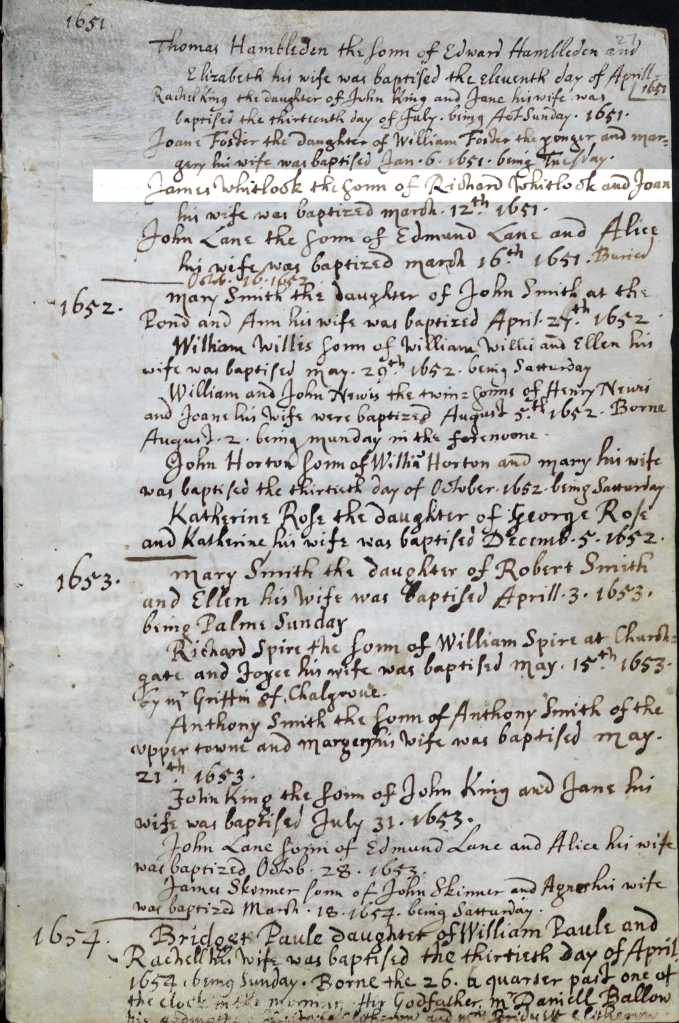 1651
27
Thomas Hambleden the sonn of Edward Hambleden and
Elizabeth his wife was baptised the eleventh day of Aprill
1651
Rachel King the daughter of John King and Jane his wife was
baptised the thirteenth day of July. being Act Sunday. 1651.
Joane Foster the daughter of William Foster the yonger and mar=
gery his wife was baptised Jan. 6. 1651. being Tuesday.
James Whitlock the sonn of Richard Whitlock and Joan
his wife was baptized march. 12th 1651.
John Lane the sonn of Edmund Lane and Alice
his wife was baptized march 16th 1651. Buried
Octob. 16. 1652
1652.
mary Smith the daughter of John Smith at the
Pond and Ann his wife was baptized April. 27th 1652
William Willis sonn of William Willis and Ellen his
wife was baptised may. 29th 1652. being Satturday
William and John Newis the twin=sonns of Henry Newis
and Joane his wife were baptized August 5th 1652. Borne
August. 2. being munday in the forenoone.
John Horton sonn of Willia Horton and mary his wife
was baptised the thirtieth day of October. 1652. being Satturday
Katherine Rose the daughter of George Rose
and Katherine his wife was baptised Decemb. 5. 1652.
1653.
mary Smith the daughter of Robert Smith
and Ellen his wife was baptised Aprill. 3. 1653.
being Palme Sunday
Richard Spire the sonn of William Spire at Church=
gate and Joyce his wife was baptised may. 15th 1653.
by mr Griffin of Chalgrove.
Anthony Smith the sonn of Anthony Smith of the
upper towne and margery his wife was baptised may.
21th 1653.
John King the sonn of John King and Jane his
wife was baptised July 31. 1653.
John Lane sonn of Edmund Lane and Alice his wife
was baptized Octob. 28. 1653.
James Skinner sonn of John Skinner and Agnes his wife
was baptized March. 18. 1654. being Satturday.
1654.
Bridget Paule daughter of William Paule and
Rachell his wife was baptised the thirtieth day of April
1654. being Sunday. Borne the 26. a quarter past one of
the clock in the morning. Her Godfather, mr Daniell Ballow
his and mrs Bridgett